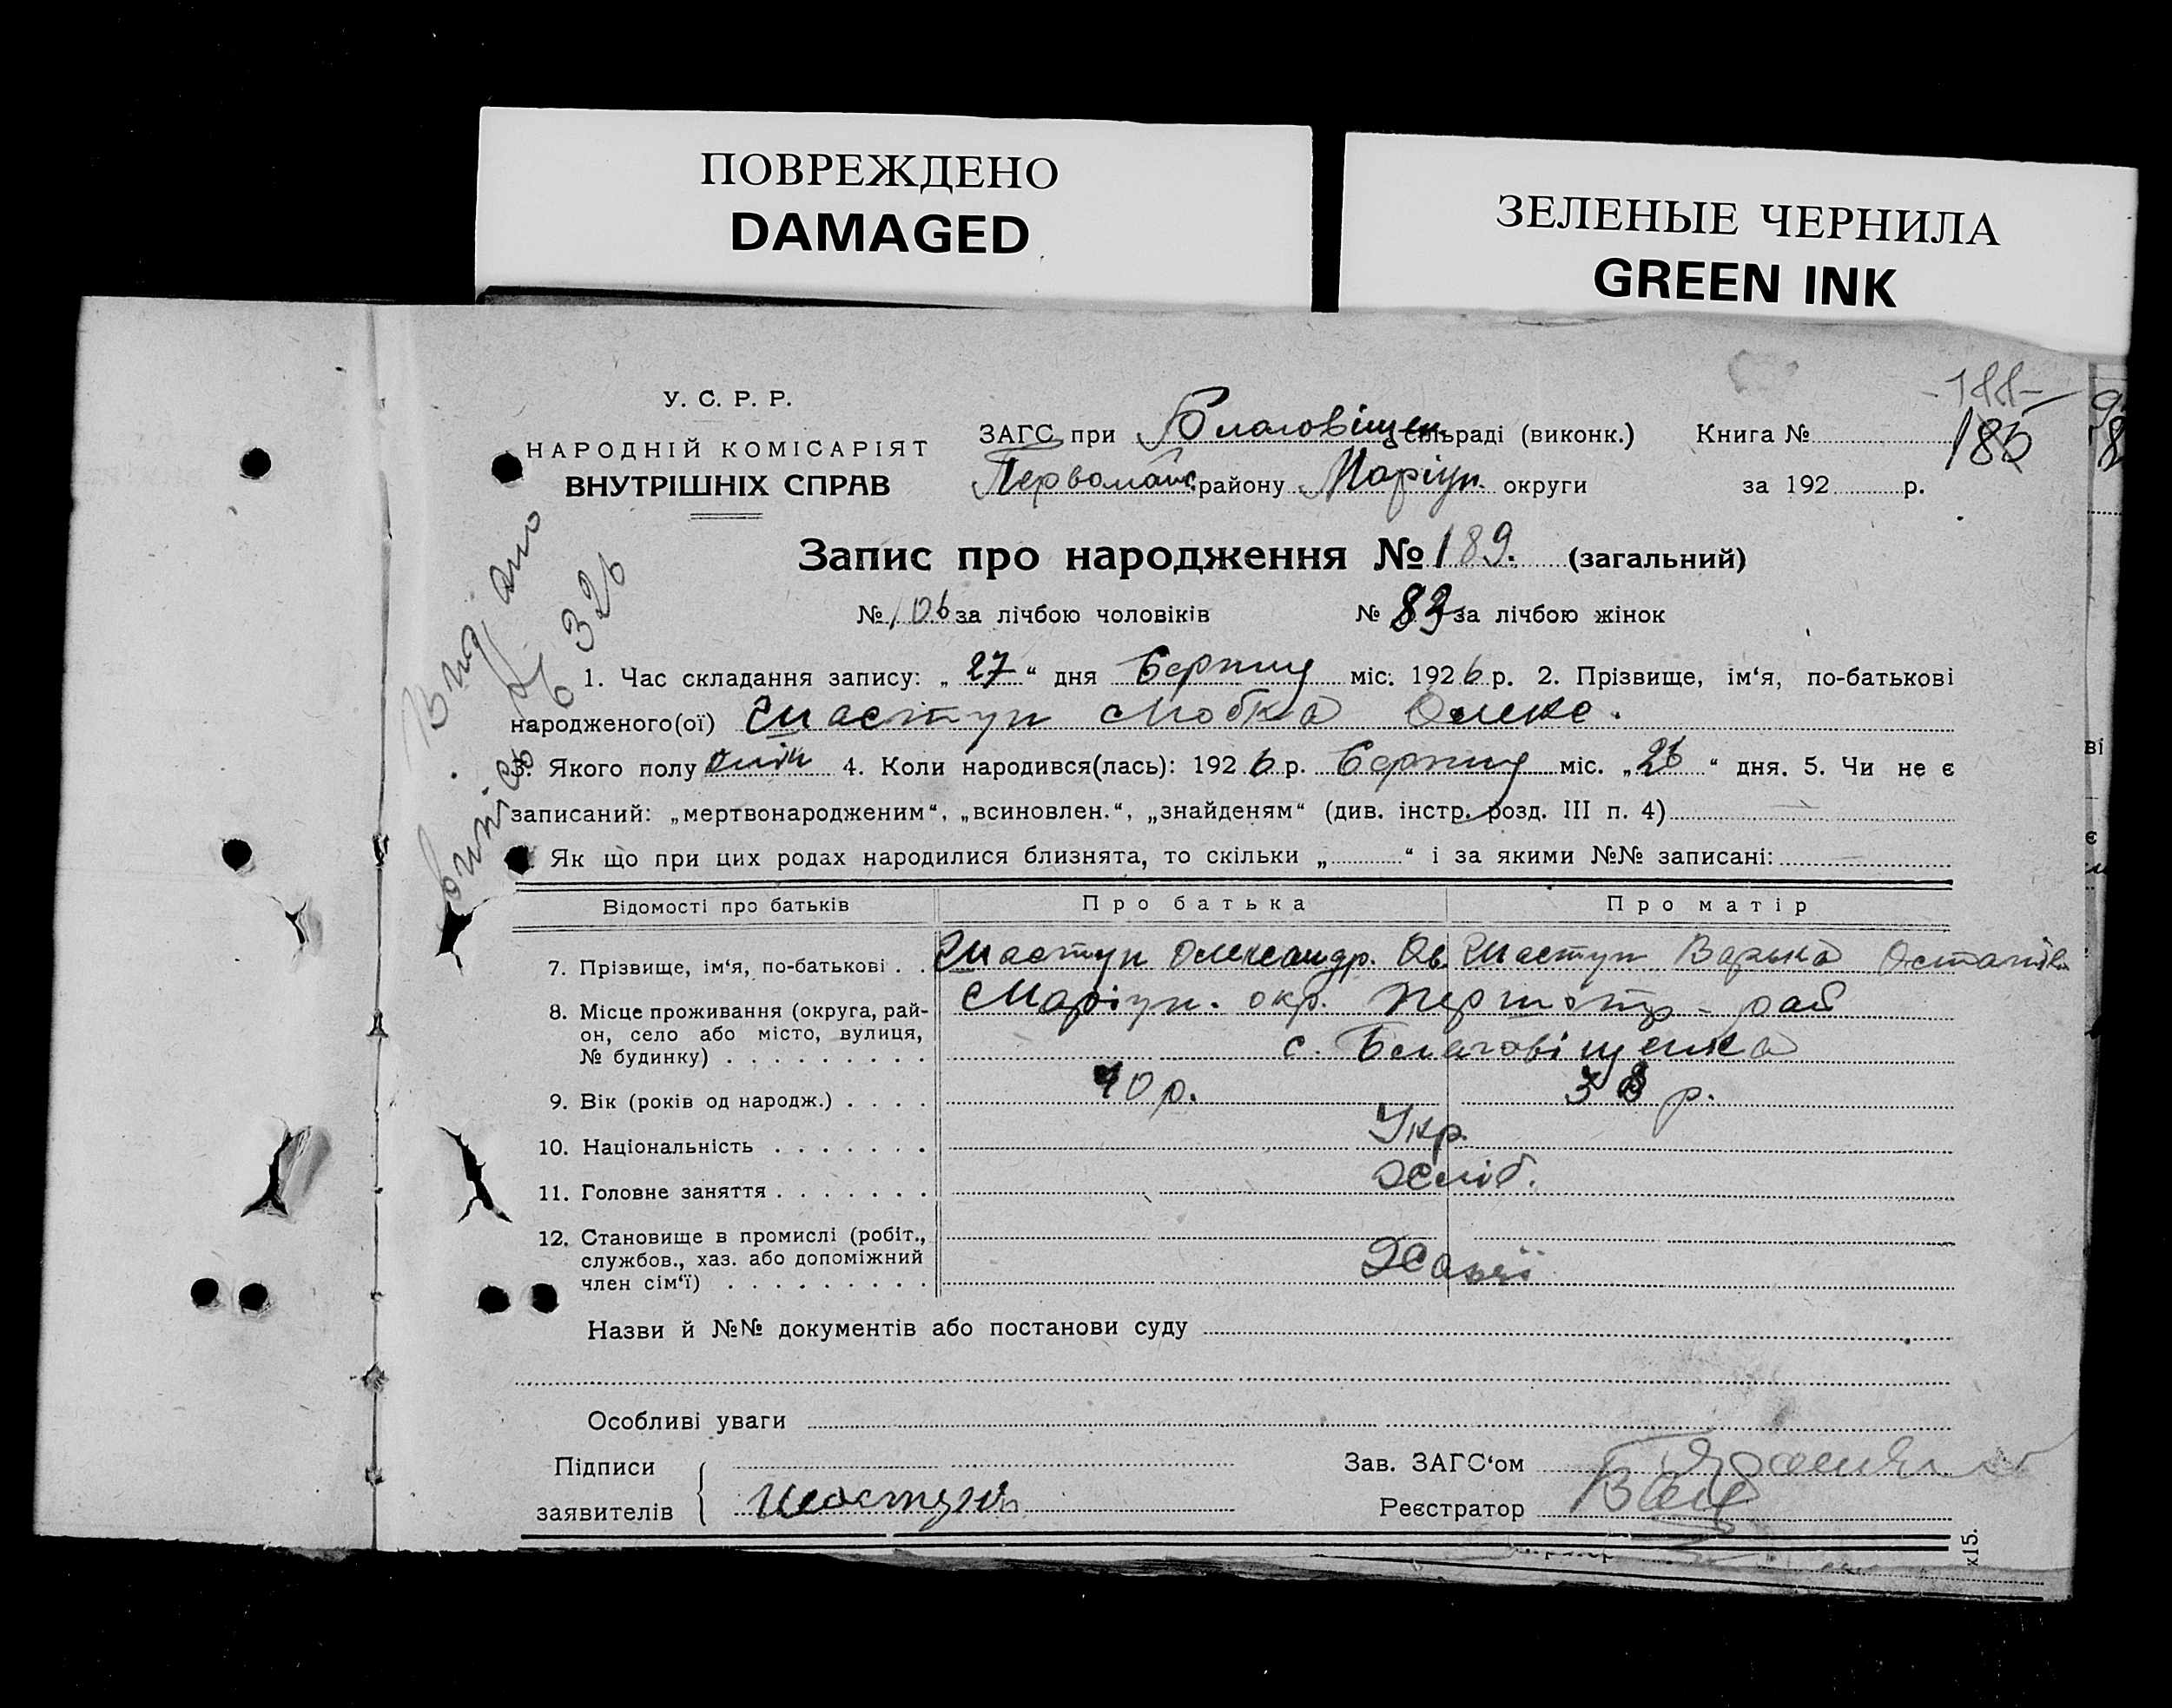 ПОВРЕЖДЕНО
DAMAGED
ЗЕЛЕНЫЕ ЧЕРНИЛА
GREEN INK
188
185
У. С. Р. Р.
НАРОДНІЙ КОМІСАРІЯТ
ВНУТРІШНІХ СПРАВ
ЗАГС при Благовіщен сільраді (виконк.) Книга №
Первомайс. району Маріуп. округи за 192 р.
Запис про народження № 189. (загальний)
№ 106 за лічбою чоловіків № 83 за лічбою жінок
Видано
№ 326
1. Час складання запису: „27“ дня Серпня міс. 1926 р. 2. Прізвище, ім‘я, по-батькові
народженого(ої) Шастун Олекс.
3. Якого полу 4. Коли народився(лась): 1926 р. Серпня міс. „26“ дня. 5. Чи не є
записаний: „мертвонародженим“, „всиновлен.“, „знайденям“ (див. інстр. розд. III п. 4)
Як що при цих родах народилися близнята, то скільки „ “ і за якими №№ записані:
Відомості про батьків Про батька Про матір
7. Прізвище, ім‘я, по-батькові . . Шастун Олександр. Ов. Шастун Варька Остапів
8. Місце проживання (округа, рай-он, село або місто, вулиця, № будинку) . . . . . . . . . Маріуп. окр. рай
с. Благовіщенка
9. Вік (років од народж.) . . . . 40 р. 38 р.
10. Національність . . . . . . . Укр.
11. Головне заняття . . . . . . . Хліб.
12. Становище в промислі (робіт., службов., хаз. або допоміжний член сім‘ї) . . . . . . . . .
Назви й №№ документів або постанови суду
Особливі уваги
Підписи
заявителів Шастун
Зав. ЗАГС‘ом
Реєстратор
х15.